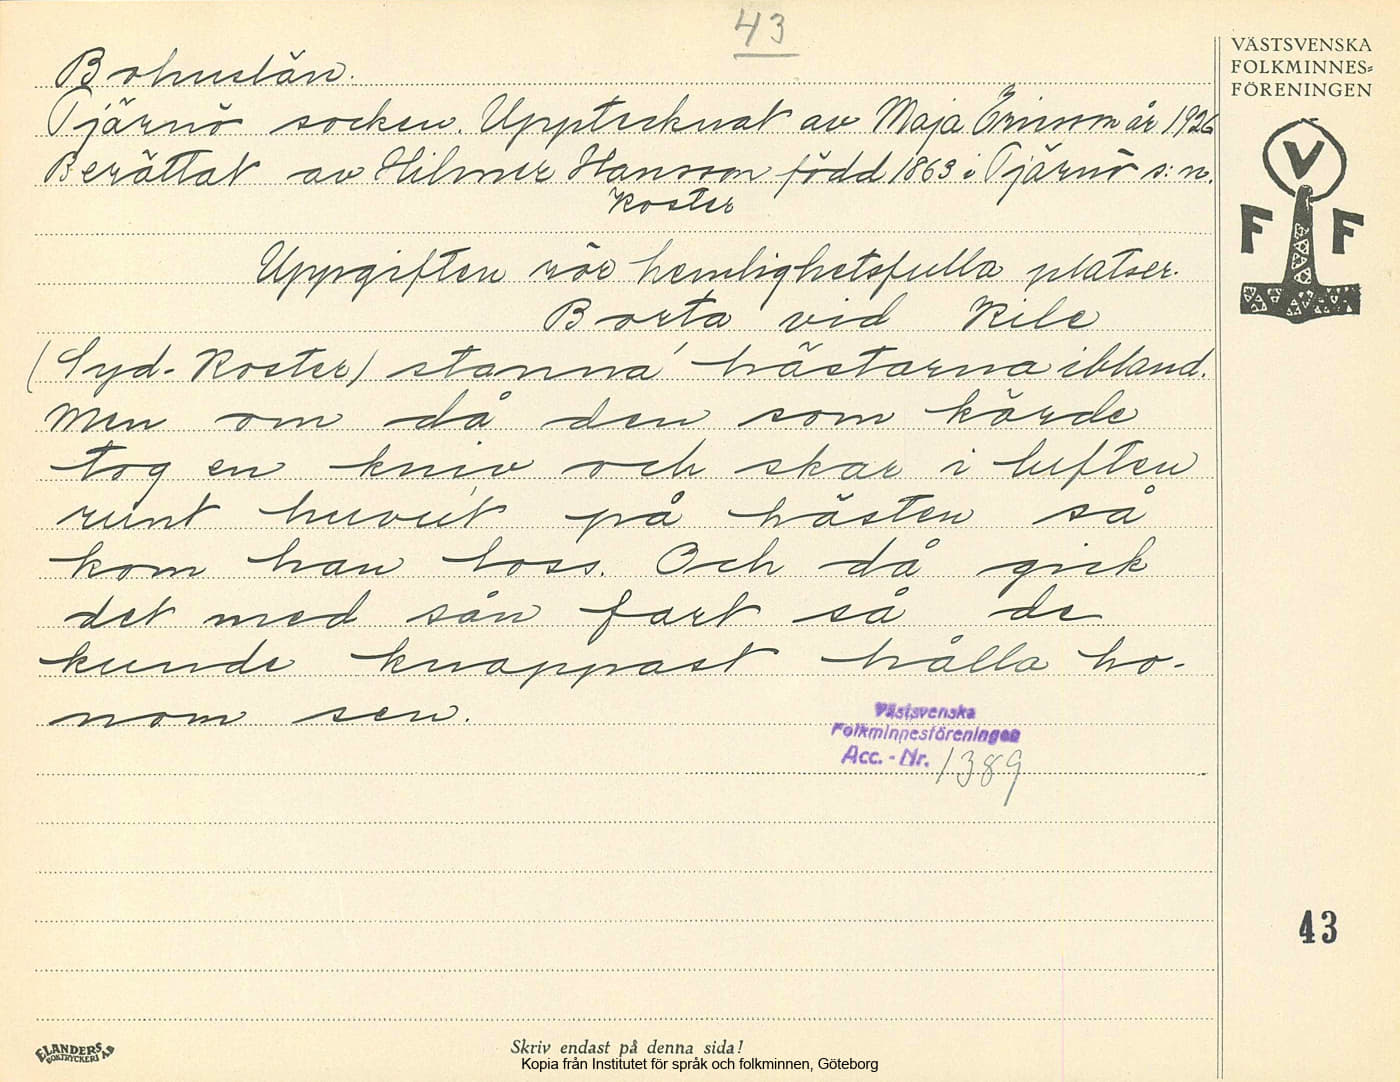 43
VÄSTSVENSKA
FOLKMINNES=
FÖRENINGEN
V
F F
Bohuslän.
Tjärnö socken. Upptecknat av Maja Ericson år 1926
Berättat av Hilmer Hansson född 1863 i Tjärnö s:n.
Koster
Uppgiften rör hemlighetsfulla platser.
Borta vid Kile
(Syd-Koster) stanna' hästarna ibland.
Men om då den som körde
tog en kniv och skar i luften
runt huvu't på hästen så
kom han loss. Och då gick
det med sån fart så de
kunde knappast hålla ho-
nom sen.
Västsvenska
Folkminnesföreningen
Acc. - Nr. 1389
43
ELANDERS
BOKTRYCKERI AB
Skriv endast på denna sida!
Kopia från Institutet för språk och folkminnen, Göteborg